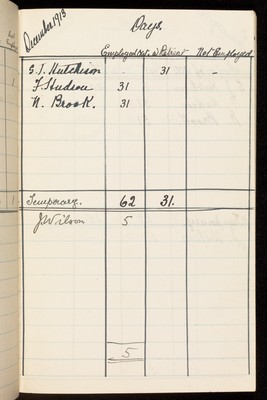 December 1913
Days.
Employed Not Employed
S. J. Hutchison . 31 -
F. Hudson 31
N. Brook. 31
Temporary. 62 31.
J Wilson 5
5